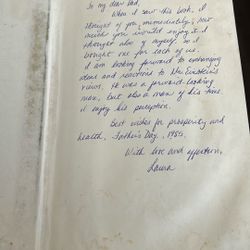 To my dear dad,
When I saw this book, I
thought of you immediately, how
much you would enjoy it. I
thought also of myself so I
bought one for each of us.
I am looking forward to exchanging
ideas and reactions to the Einstein's
views. He was a forward-looking
man, but also a man of his time.
I enjoy his perception.
Best wishes for prosperity and
health, Father's Day, 1985.
With love and affection,
Laura